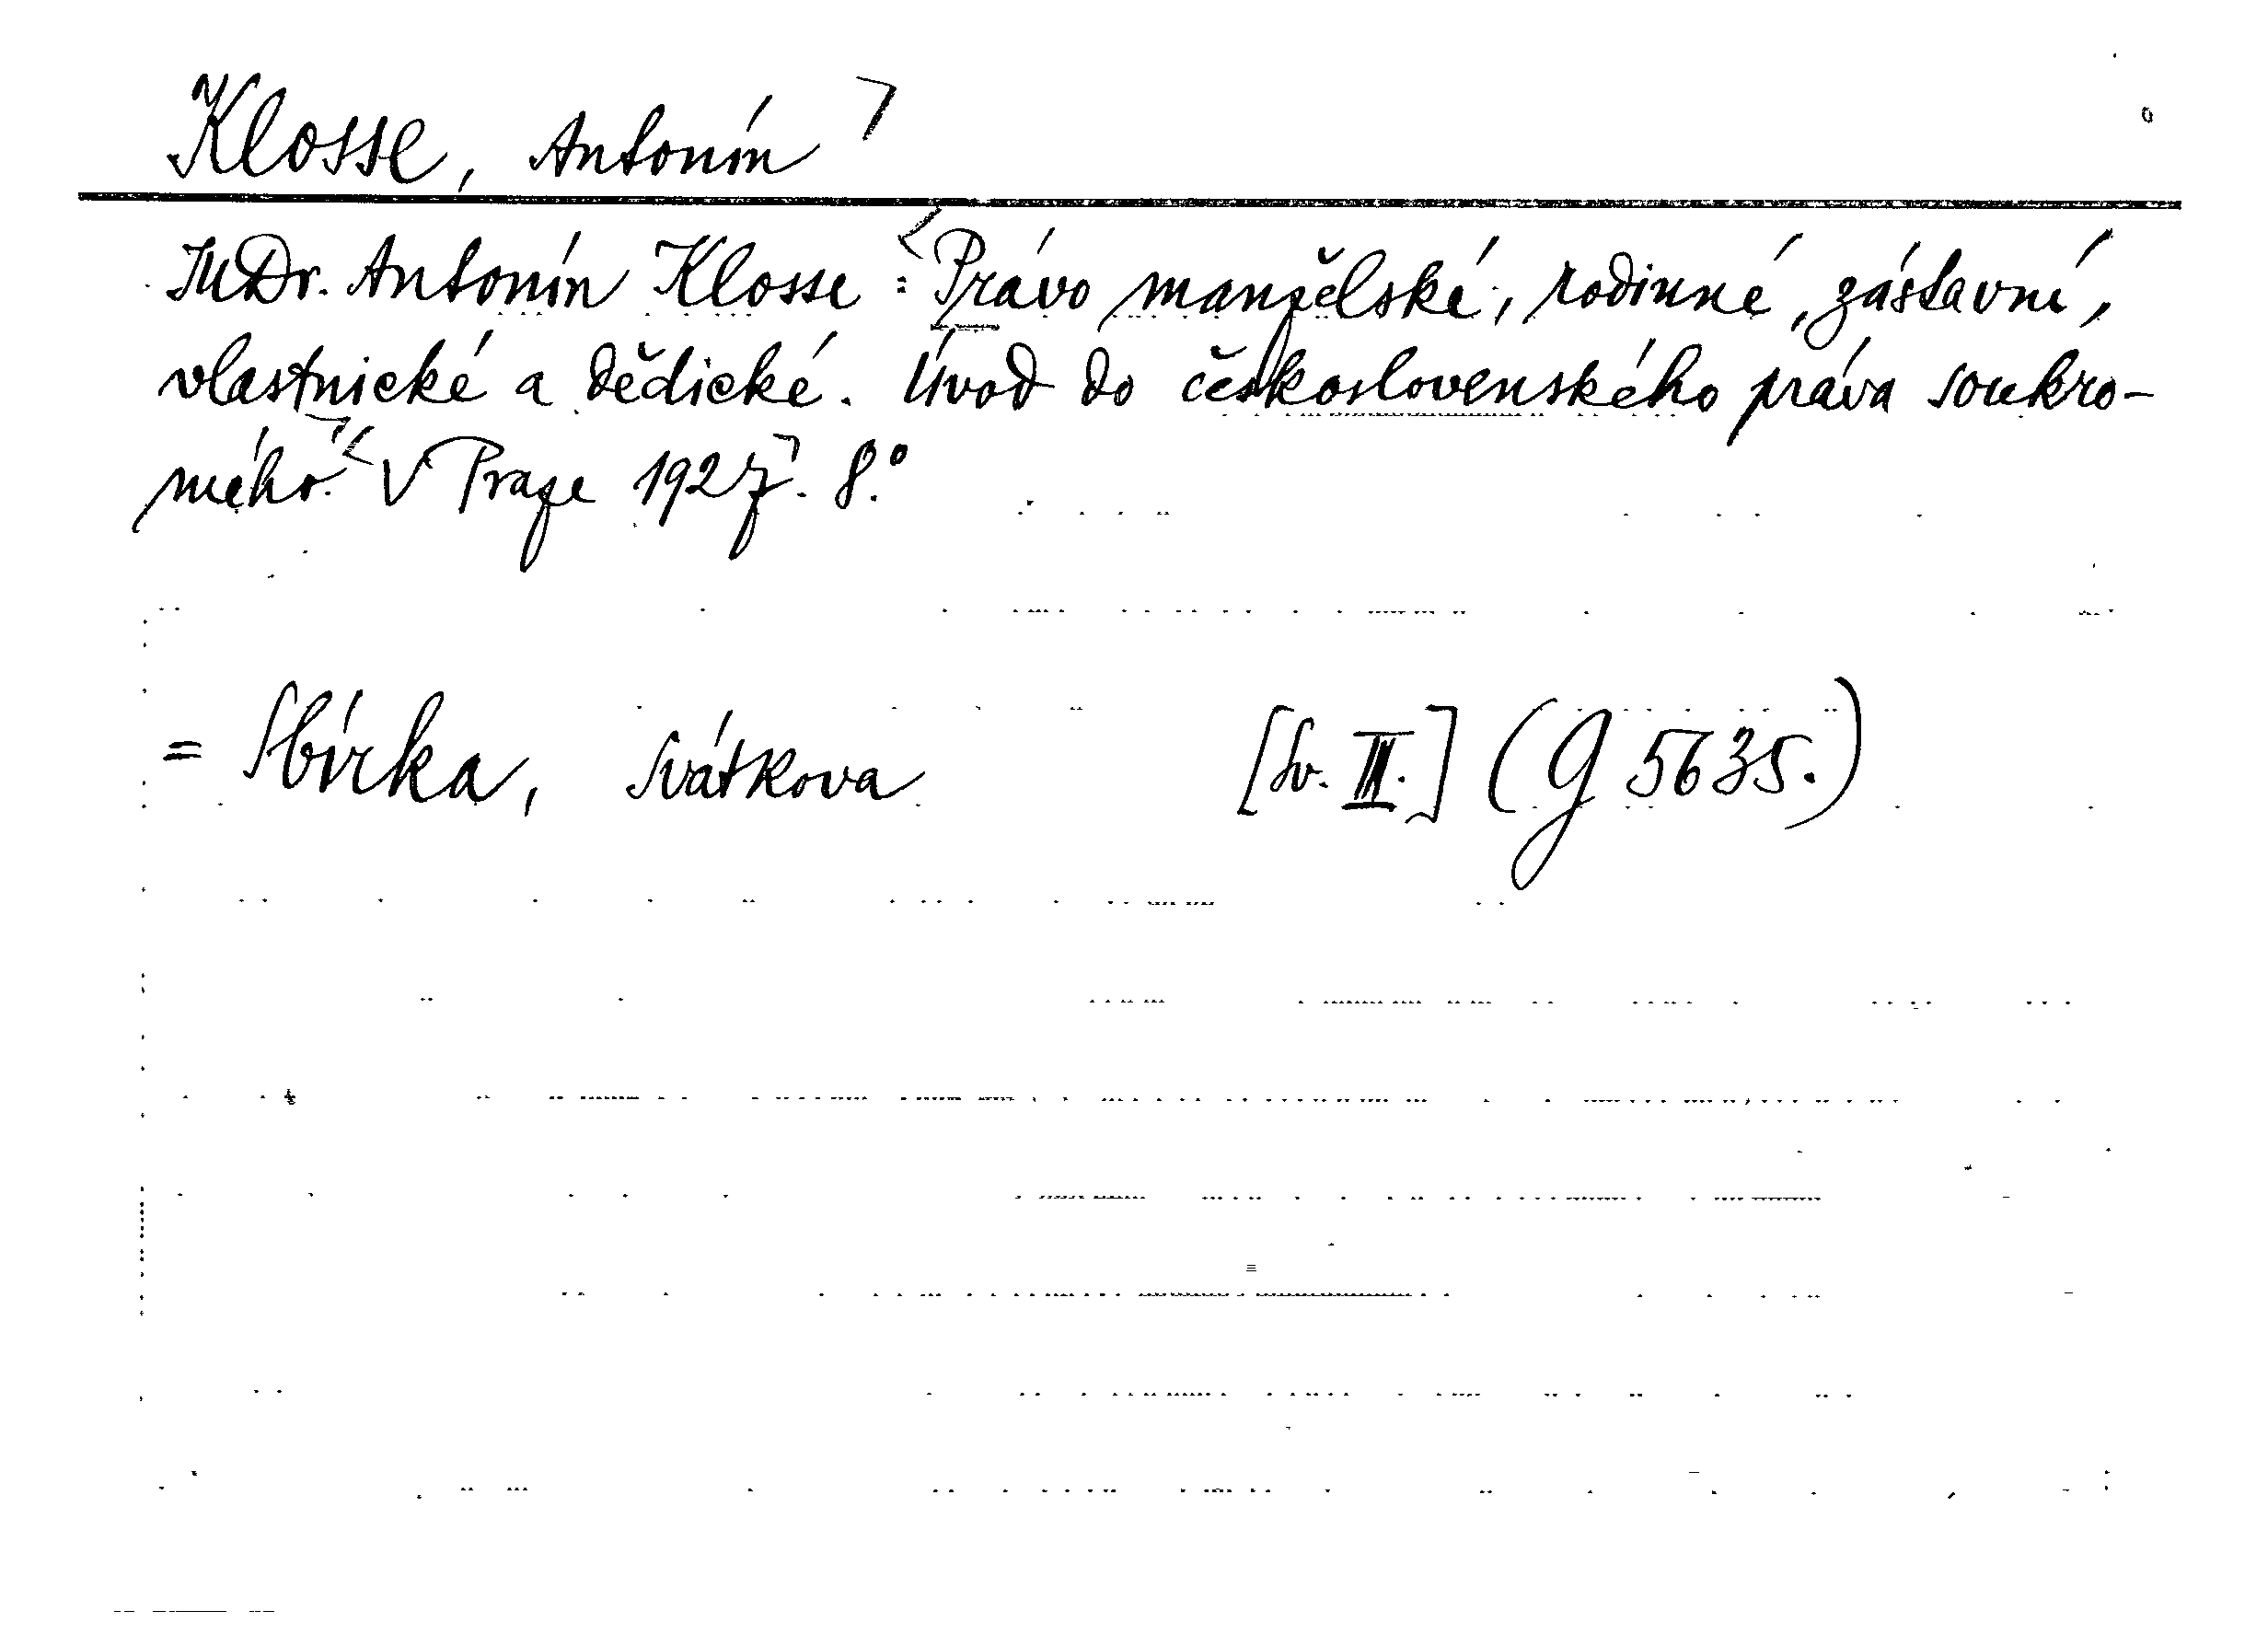 Klosse, Antonín
JUDr. Antonín Klosse: Právo manželské, rodinné, zástavní,
vlastnické a dědické. Úvod do československého práva soukro-
mého. V Praze 1927. 8.°
= Sbírka, Svátkova [Sv. III.] (G 5635.)